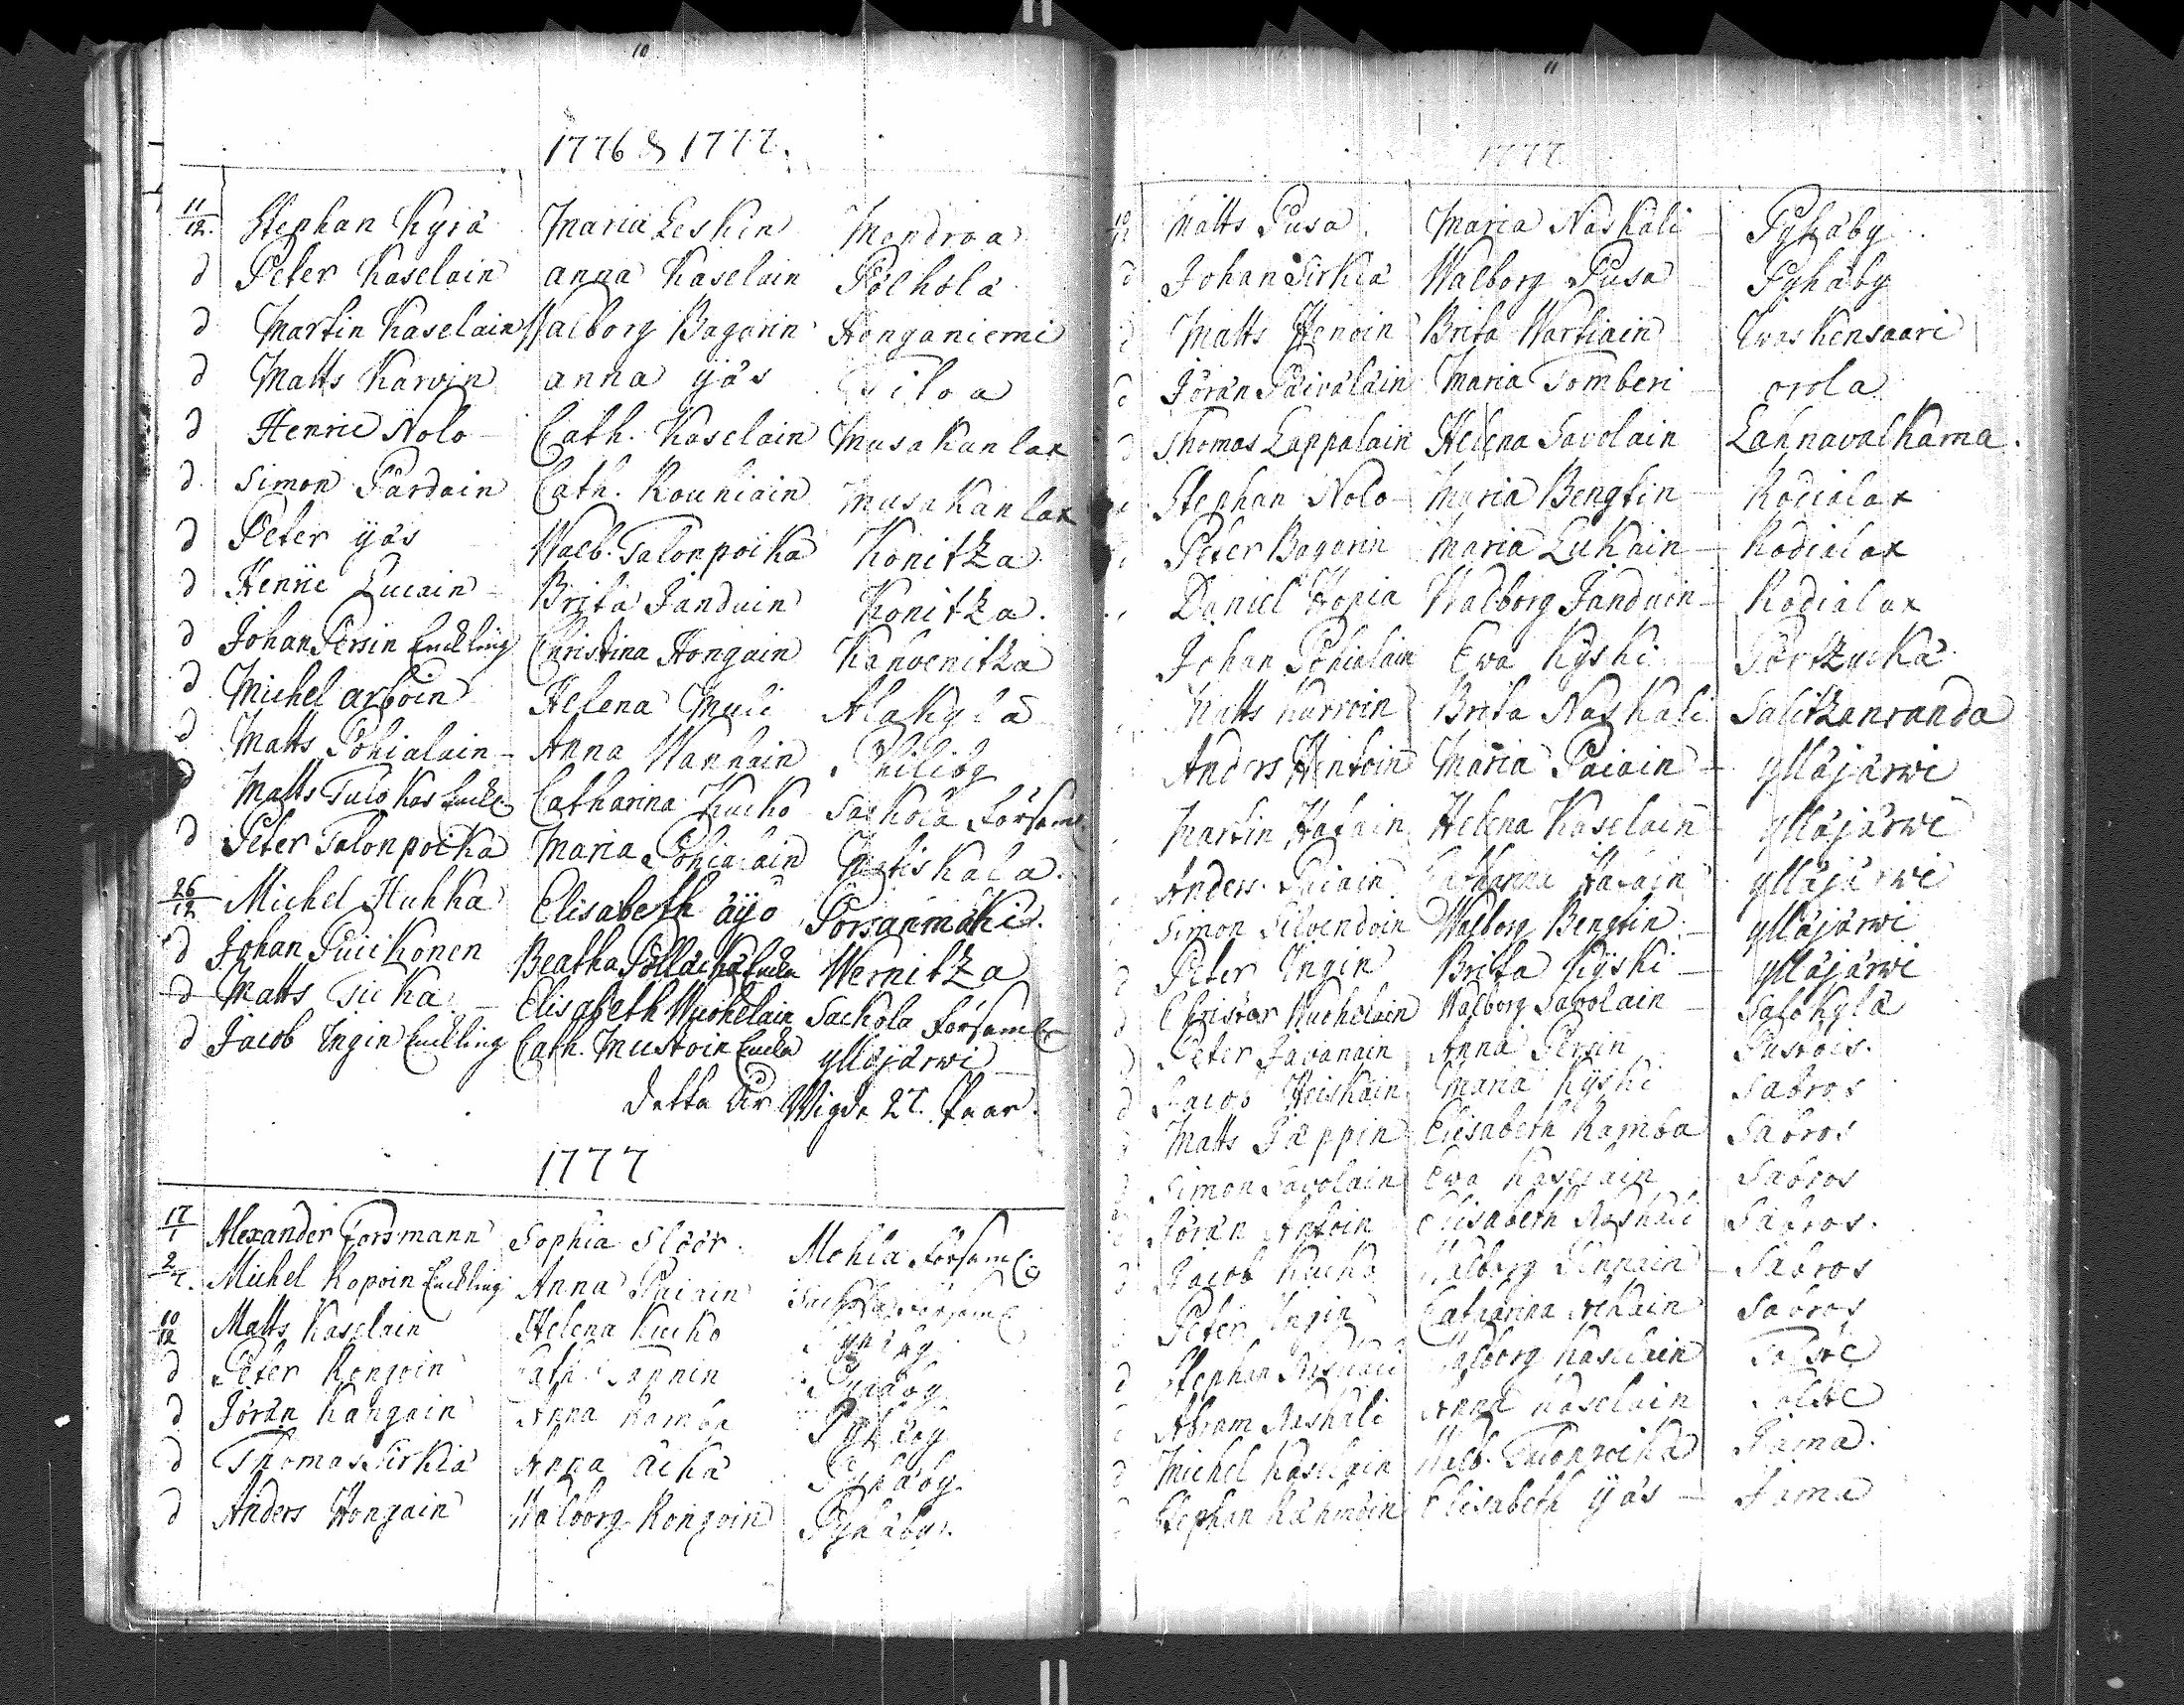 10
1776 & 1777.
11/12. Stephan Kyrä Maria Leskin Mondroa
d Peter Kaselain anna Kaselain Pölhölä
d Martin Kaselain Walborg Bagarin Honganiemi
d Matts Karvin anna yäs
d Henric Nolo Cath. Kaselain Musakanlax
d. Simon Pärdain Cath. Rouhiain Musakanlax
d Peter yäs Walb. Talonpoika Konitza
d Henric Lucain Brita Janduin Konitza.
d Johan Persin Enckling Christina Hongain Kanvenitza
d Michel arboin Helena Muli Alakylä
d Matts Pohialain Anna Wanhain Philiby
d Matts Tulokas Enckl Catharina Kucko Sackola Församl.
d Peter Talonpoika Maria Pohialain
26/12 Michel Hukka Elisabeth äyö Porsanmäki.
d Johan Puickonen Beatha Pölläckä Encka Wernitza
d Matts Sicka Elisabeth Wuohelain Sackola Församl
d Jacob Ingin Enckling Cath. Mustoin Encka ylläjärwi
Detta År Wigde 27. Paar.
1777
17/1 Alexander Forsmann Sophia Slöör. Mohla Församl
2/2. Michel Kopoin Enckling Anna Paiain Sackola Församl.
10/12 Matts Kaselain Helena Kucko Pyhäby
d Peter Rongoin Cath. Pyhäby
d Jöran Kangain Anna Ramba Pyhäby
d Thomas Sirkiä Anna äikä Pyhäby.
d Anders Hongain Walborg Rongoin Pyhäby.
11
1777
10/12 Matts Pusa Maria Naskali Pyhäby
d Johan Sirkiä Walborg Pusa Pyhäby
d Matts Henoin Brita Wartiain Uvaskensaari
d Jöran Päiväläin Maria Tomberi orola
d Thomas Lappalain Helena Savolain Lahnavalkama.
Stephan Nolo Maria Bengtin Kodialax
Peter Bagarin Maria Lukain Kodialax
Daniel Hopia Walborg Janduin Kodialax
Johan Pohialain Ewa Kyski Pörtzyckä
Matts Karvoin Brita Naskali Salitzanranda
Anders Hentoin Maria Paiain ylläjärwi
Martin Hatain Helena Kaselain ylläjärwi
Anders Paiain Catharina Hatain ylläjärwi
Simon Silvendoin Walborg Bengtin ylläjärwi
d Peter Ingin Brita Kyski ylläjärwi
d Christer Wuohelain Walborg Savolain Salokylä
d Peter Javanain Anna Persin Pustois.
d Jacob Heiskain Maria Kyski Sabros
Matts Päppin Elisabeth Ramba Sabros
Simon Savolain Ewa Kaselain Sabros
Jöran Antoin Elisabeth Naskali Sabros.
Jacob Kucko Walborg Sabros
Peter Ingin Catharina Sabros
d Stephan Naskali Walborg Kaselain
Abram Naskali Anna Kaselain
d Michel Kaselain Walb. Talonpoika Jama.
Stephan Rähmöin Elisabeth yäs Jama